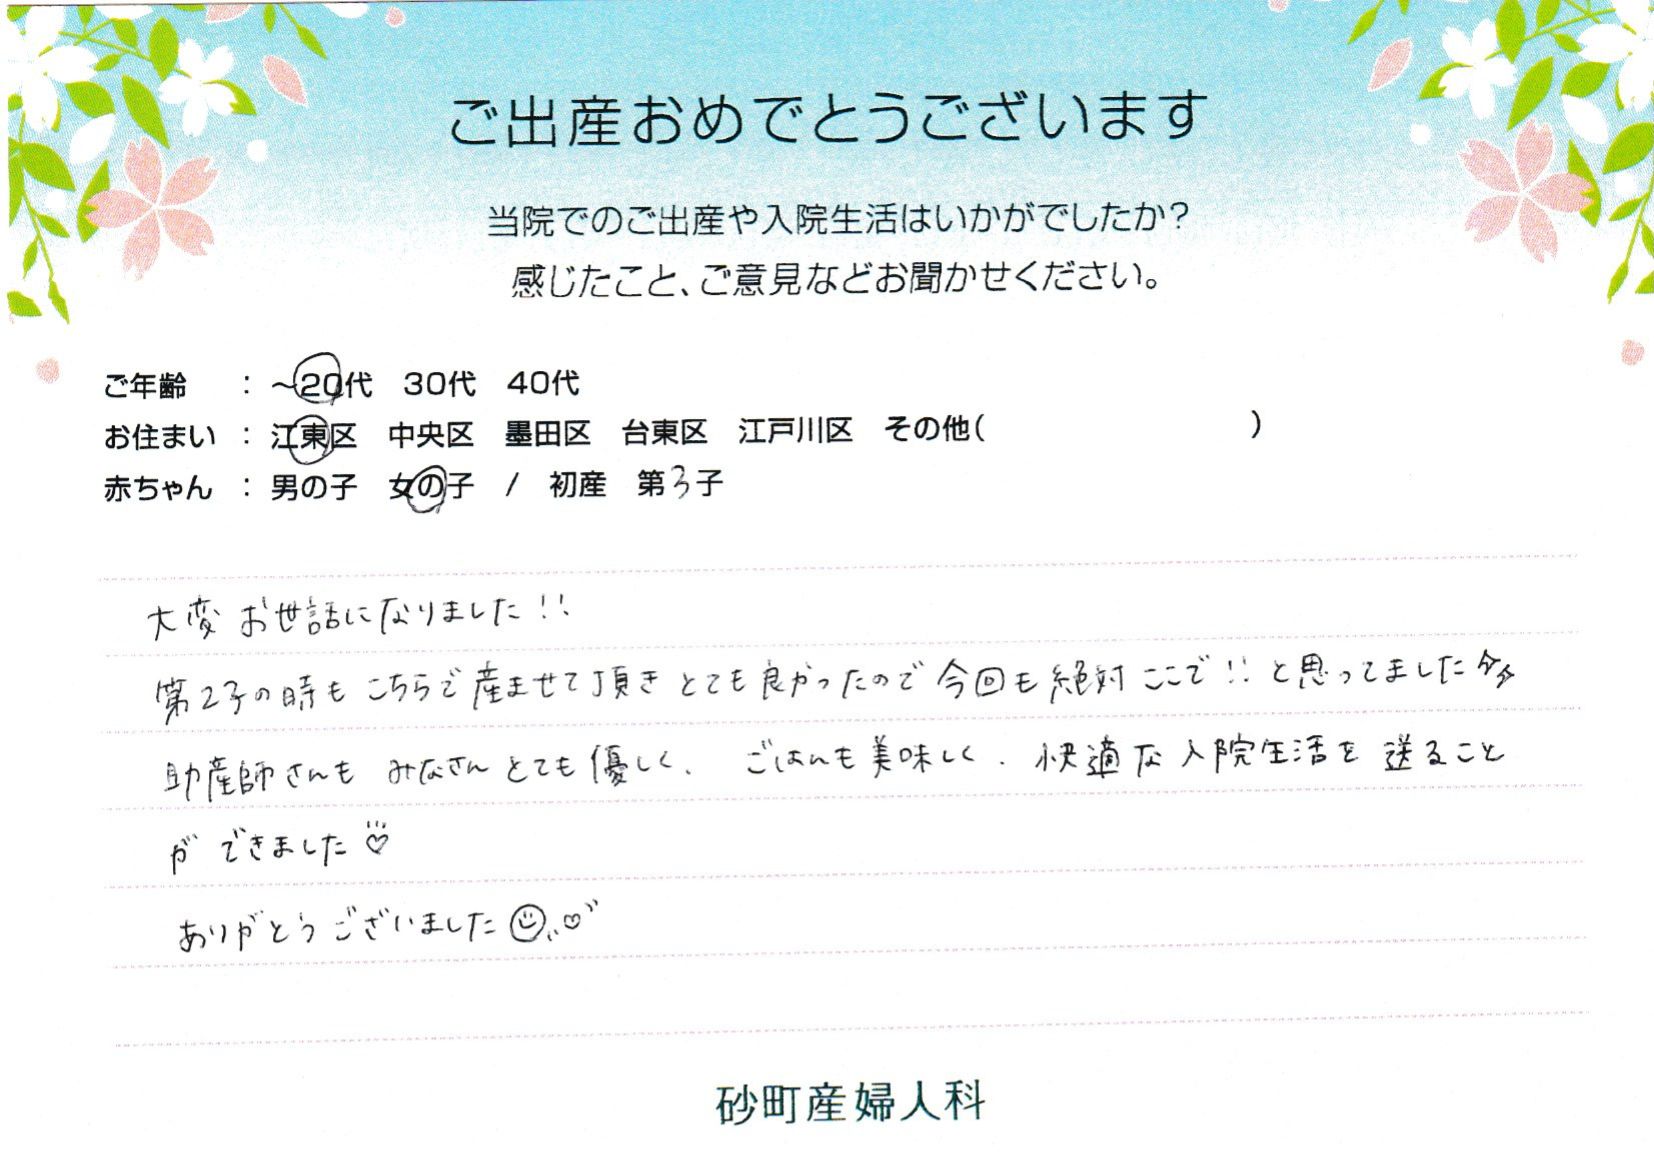 ご出産おめでとうございます
当院でのご出産や入院生活はいかがでしたか?
感じたこと、ご意見などお聞かせください。
ご年齢 : ～20代 30代 40代
お住まい : 江東区 中央区 墨田区 台東区 江戸川区 その他( )
赤ちゃん : 男の子 女の子 / 初産 第3子
大変お世話になりました!!
第2子の時もこちらで産ませて頂きとても良かったので今回も絶対ここで!!と思ってました
助産師さんもみなさんとても優しく、ごはんも美味しく、快適な入院生活を送ること
ができました♡
ありがとうございました☺♡
砂町産婦人科